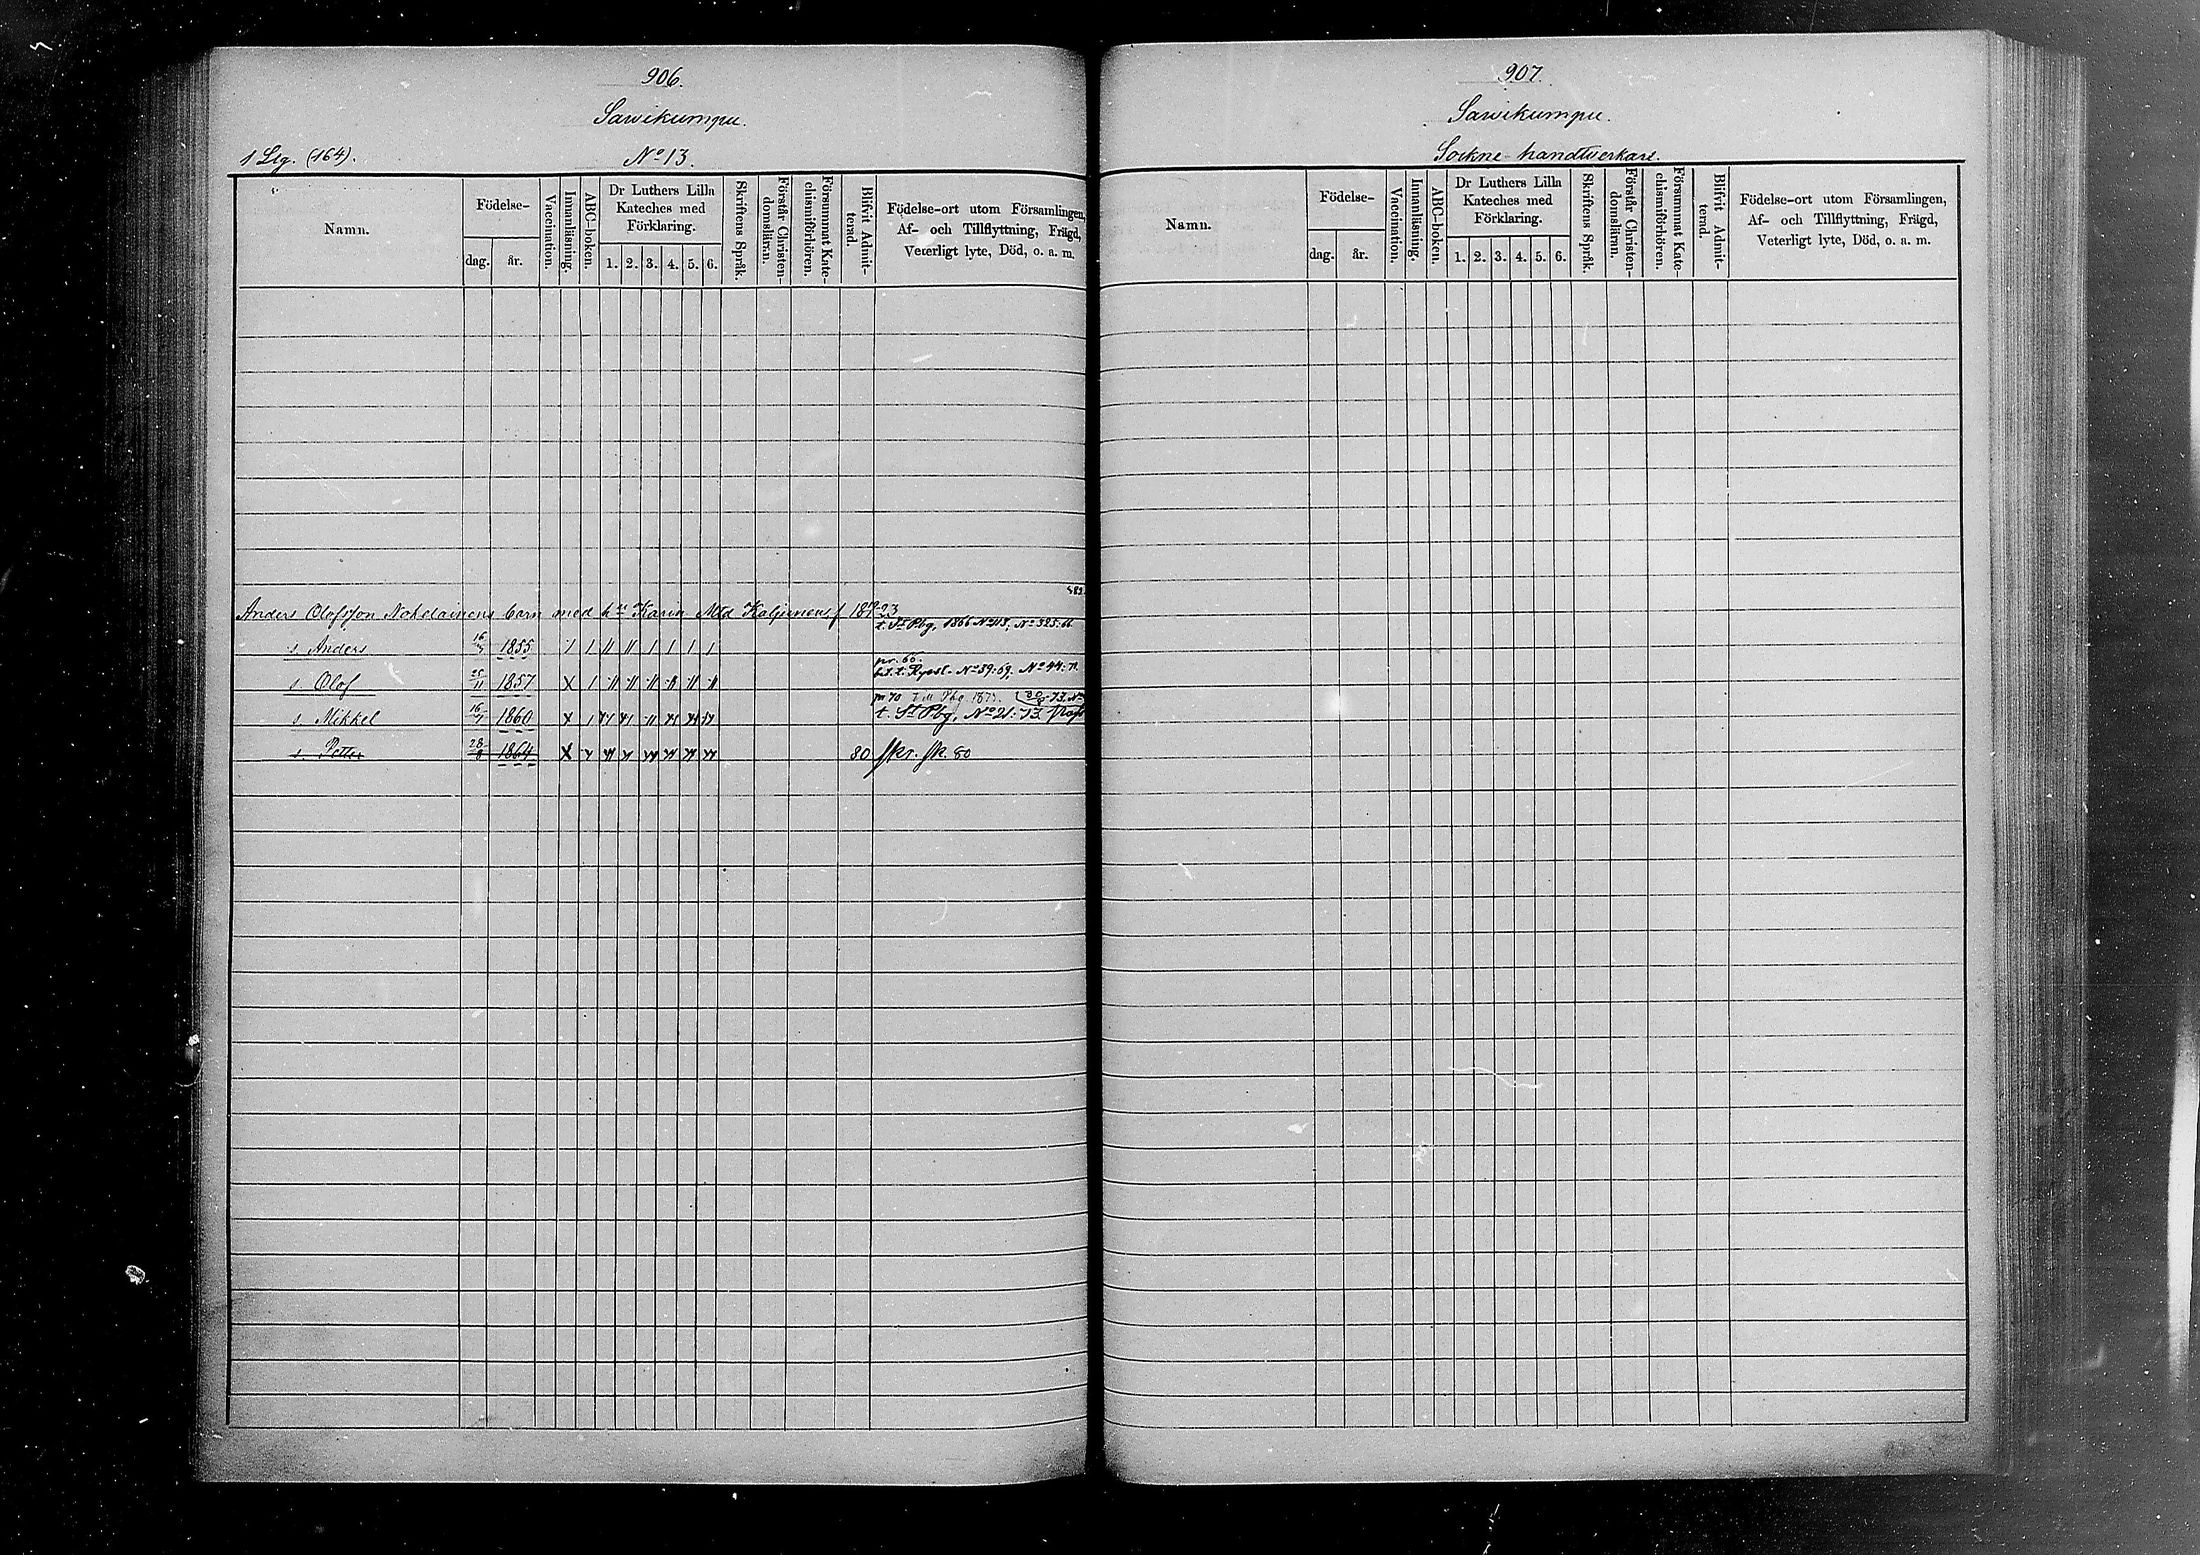 906.
Sawikumpu.
1 Leg. (164).
No 13.
Namn.
Födelse-
dag.
år.
Vaccination.
Innanläsning.
ABC-boken.
Dr Luthers Lilla
Kateches med
Förklaring.
1. 2. 3. 4. 5. 6.
Skriftens Språk.
Förstår Christen-
domsläran.
Försummat Kate-
chismiförhören.
Blifvit Admit-
terad.
Födelse-ort utom Församlingen,
Af- och Tillflyttning, Frägd,
Veterligt lyte, Död, o. a. m.
Anders Olofsson Nokelainens barn med h:u Karin Mtd 18 23
t. St Pbg, 1866 No 218, No 325:66
s. Anders 16/5 1855
pr. 66.
No 89:69, No 44:71
s. Olof 25/11 1857 X
t. St Pbg, No 21:73.
s. Mikkel 16/7 1860 x
s. Petter 28/8 1864 X 80 skr. sk. 80
907.
Sawikumpu.
Sockne handtverkare.
Namn.
Födelse-
dag.
år.
Vaccination.
Innanläsning.
ABC-boken.
Dr Luthers Lilla
Kateches med
Förklaring.
1. 2. 3. 4. 5. 6.
Skriftens Språk.
Förstår Christen-
domsläran.
Försummat Kate-
chismiförhören.
Blifvit Admit-
terad.
Födelse-ort utom Församlingen,
Af- och Tillflyttning, Frägd,
Veterligt lyte, Död, o. a. m.